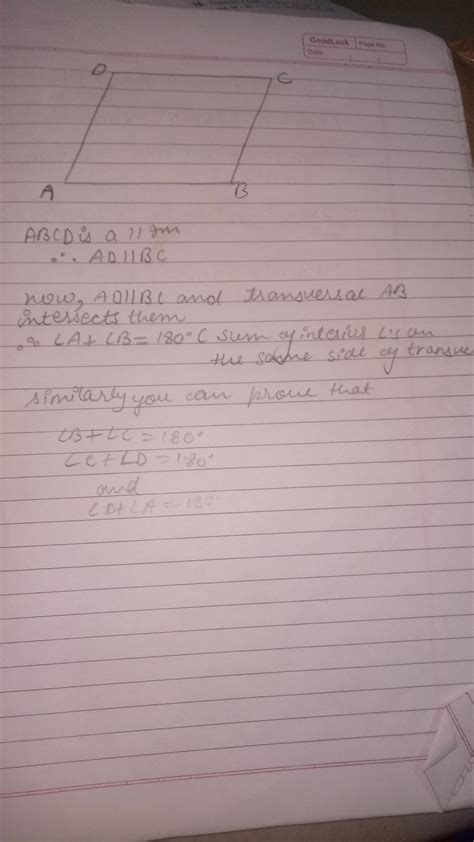 GoodLuck Page No.
Date
D C
A B
ABCD is a 11 gm
∴ AD11BC
now, AD11BC and transversal AB
intersects them
∴ ∠A+ ∠B= 180° ( Sum of interius ∠s on
the same side of transve
similarly you can prove that
∠B+∠C =180°
∠C+∠D =180°
and
∠D+∠A =180°